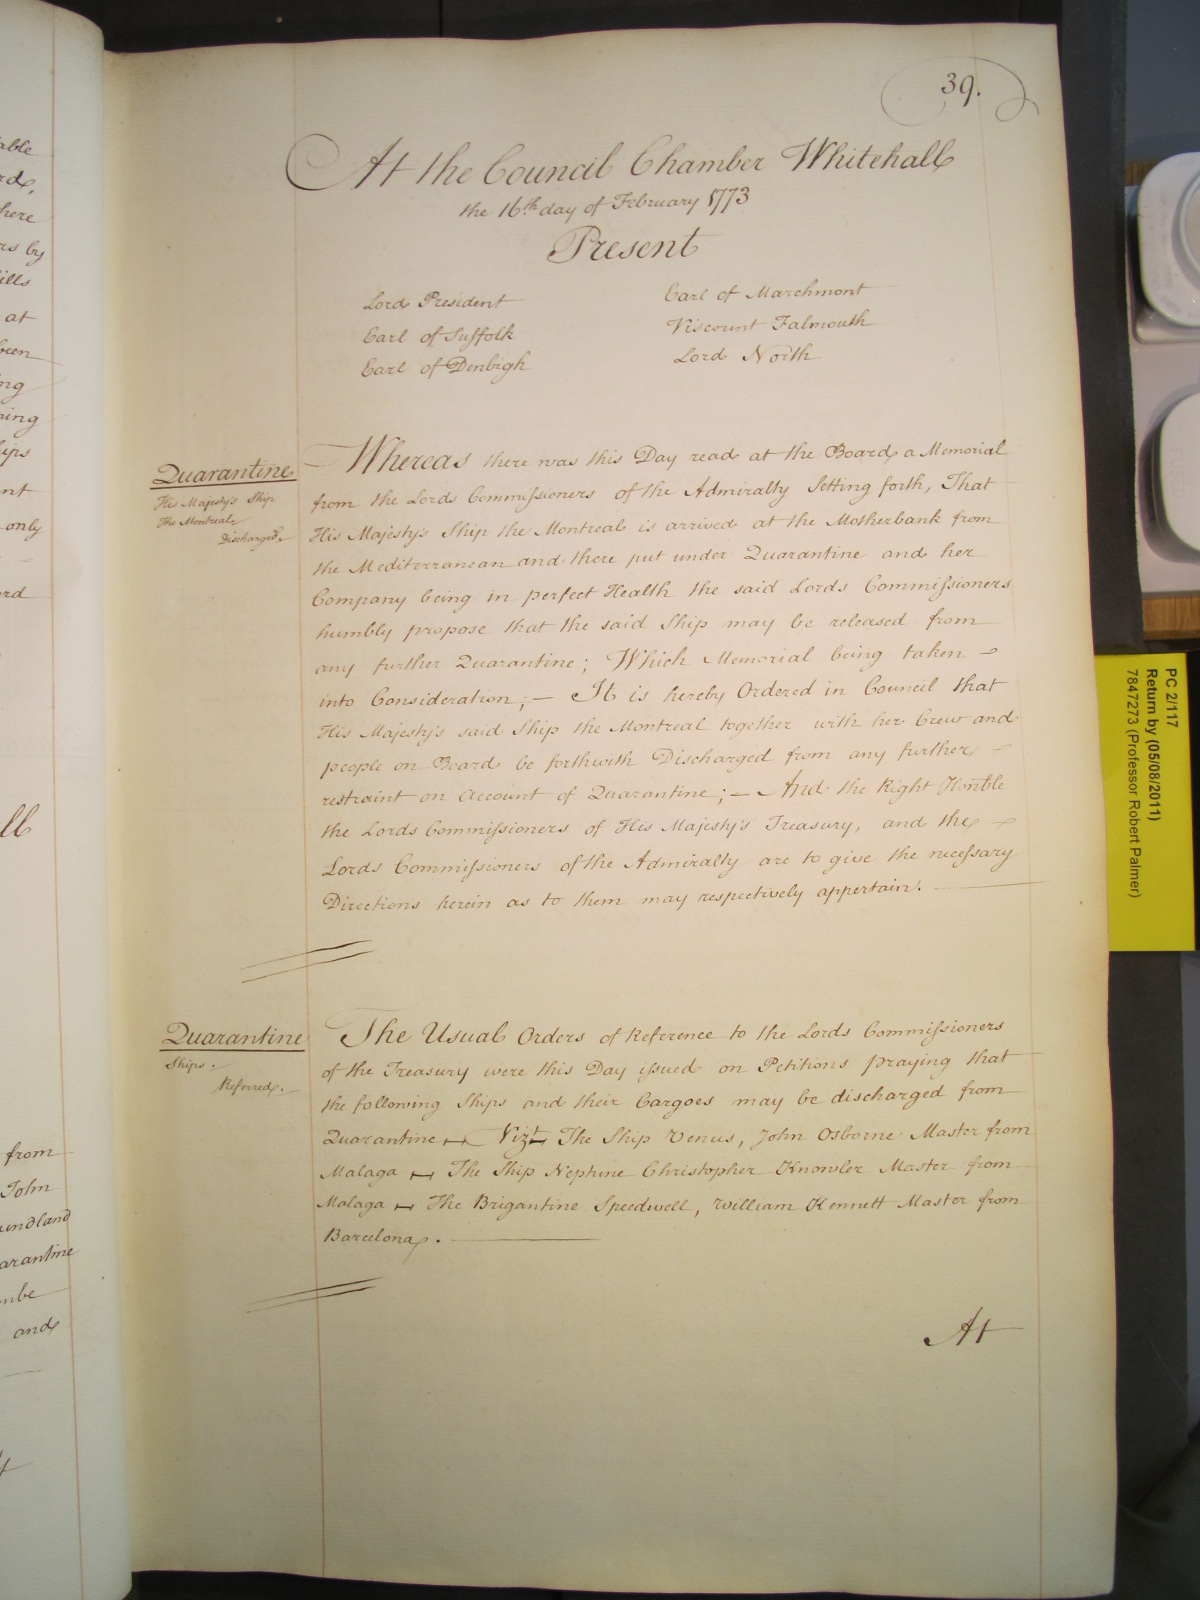 39.
At the Council Chamber Whitehall
the 16th day of February 1773
Present
Lord President
Earl of Suffolk
Earl of Denbigh
Earl of Marchmont
Viscount Falmouth
Lord North
Quarantine
His Majesty's Ship
The Montreal
Discharged
Whereas there was this Day read at the Board a Memorial
from the Lords Commissioners of the Admiralty Setting forth, That
His Majesty's Ship the Montreal is arrived at the Motherbank from
the Mediterranean and there put under Quarantine and her
Company being in perfect Health the said Lords Commissioners
humbly propose that the said Ship may be released from
any further Quarantine; Which Memorial being taken –
into Consideration; – It is hereby Ordered in Council that
His Majesty's said Ship the Montreal together with her Crew and
people on Board be forthwith Discharged from any further –
restraint on Account of Quarantine; – And the Right Honble
the Lords Commissioners of His Majesty's Treasury, and the –
Lords Commissioners of the Admiralty are to give the necessary
Directions herein as to them may respectively appertain.
Quarantine
Ships.
Referred.
The Usual Orders of Reference to the Lords Commissioners
of the Treasury were this Day issued on Petitions praying that
the following Ships and their Cargoes may be discharged from
Quarantine – Vizt – The Ship Venus, John Osborne Master from
Malaga – The Ship Neptune Christopher Knowler Master from
Malaga – The Brigantine Speedwell, William Kennett Master from
Barcelona.
At
able
here
rs by
ills
at
been
ng
ning
nt
only
from
John
undland
arantine
and
PC 2/117
Return by (05/08/2011)
7847273 (Professor Robert Palmer)